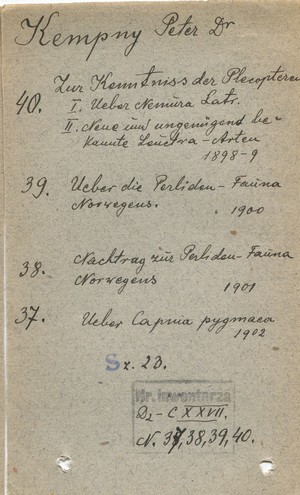 Kempny Peter Dr
40. Zur Kenntniss der Plecopteren
I. Ueber Nemura Latr.
II. Neue und ungenügend be-
kannte Leuctra-Arten
1898-9
39. Ueber die Perliden-Fauna
Norwegens.
1900
38. Nachtrag zur Perliden-Fauna
Norwegens
1901
37. Ueber Capnia pygmaea
1902
Sz. 23.
Nr. inwentarza
D2-C XXVII.
N. 37,38,39,40.